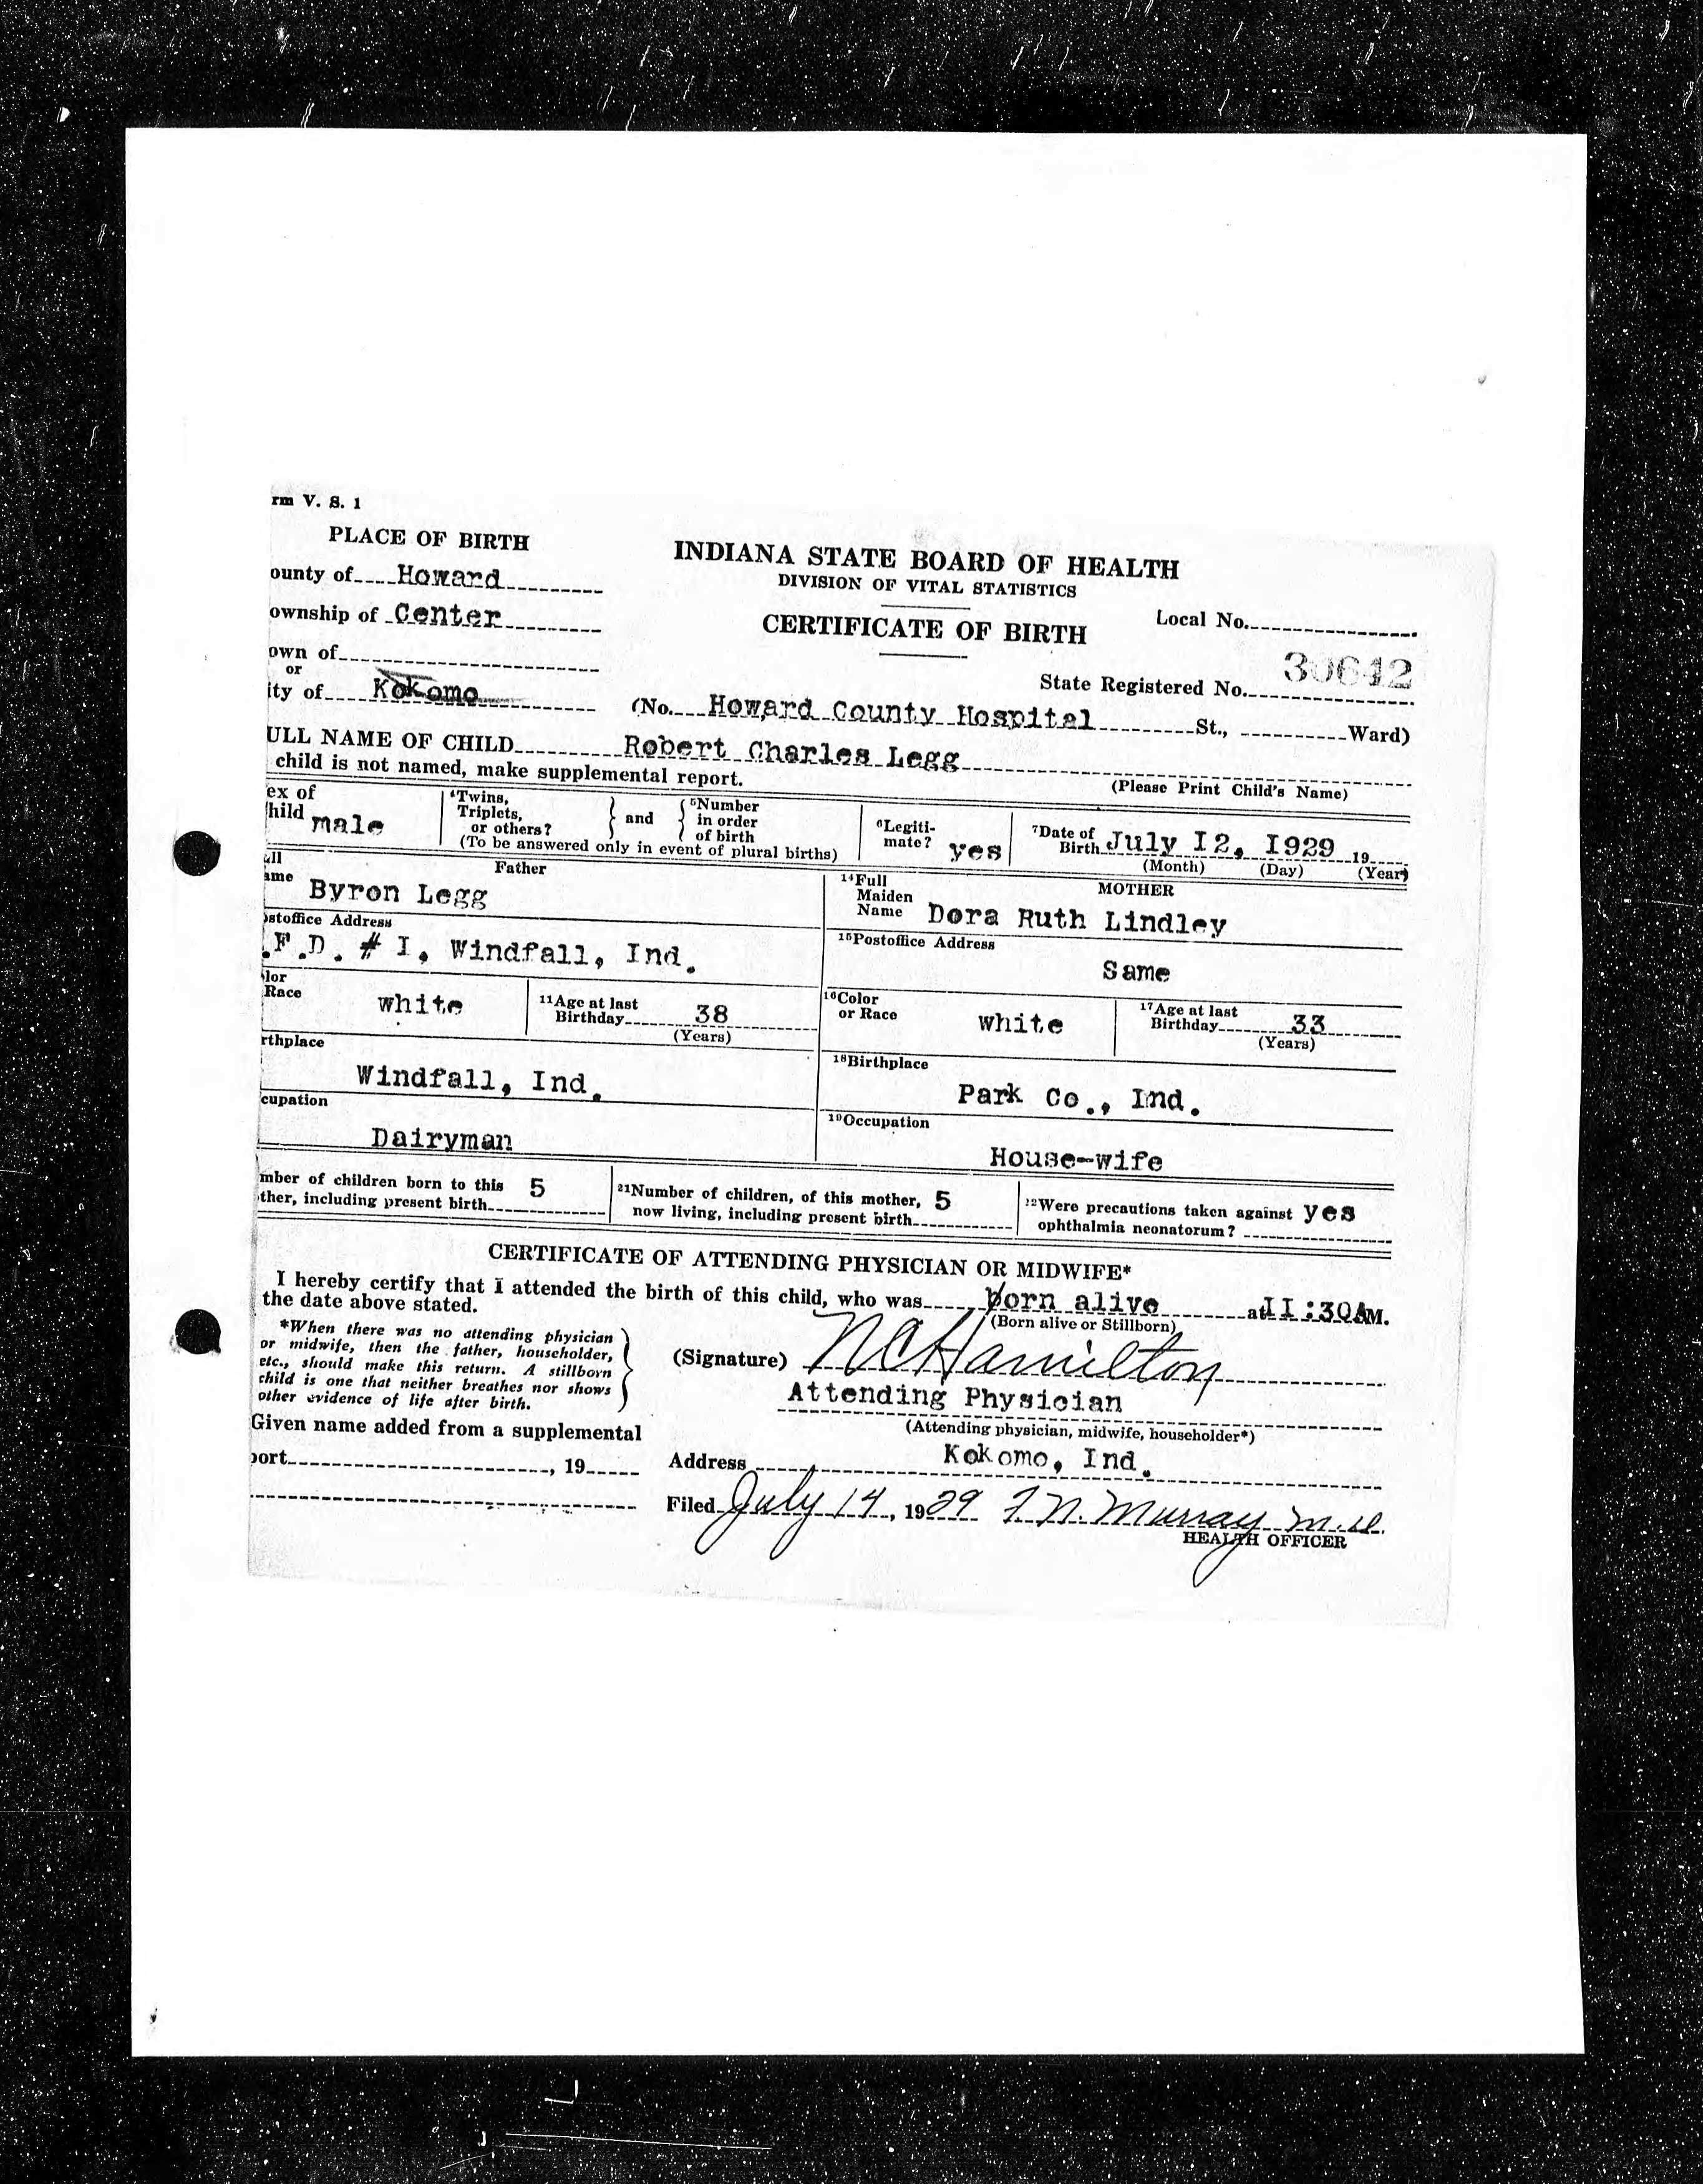 rm V. S. 1
PLACE OF BIRTH
ounty of Howard
ownship of Center
own of
or
ity of Kokomo
INDIANA STATE BOARD OF HEALTH
DIVISION OF VITAL STATISTICS
CERTIFICATE OF BIRTH
Local No.
State Registered No. 30642
(No. Howard County Hospital St., Ward)
ULL NAME OF CHILD Robert Charles Legg
child is not named, make supplemental report. (Please Print Child's Name)
ex of
hild male
4Twins,
Triplets,
or others?
and
5Number
in order
of birth
(To be answered only in event of plural births)
6Legiti-
mate? yes
7Date of
Birth July I2, I929 19
(Month) (Day) (Year)
ull
ame Byron Legg
Father
14Full
Maiden
Name Dora Ruth Lindley
MOTHER
ostoffice Address
.F.D. # I, Windfall, Ind.
15Postoffice Address
Same
olor
Race white
11Age at last
Birthday 38
(Years)
16Color
or Race white
17Age at last
Birthday 33
(Years)
rthplace
Windfall, Ind.
18Birthplace
Park Co., Ind.
cupation
Dairyman
19Occupation
House-wife
mber of children born to this
other, including present birth 5
21Number of children, of this mother,
now living, including present birth 5
22Were precautions taken against
ophthalmia neonatorum? yes
CERTIFICATE OF ATTENDING PHYSICIAN OR MIDWIFE*
I hereby certify that I attended the birth of this child, who was born alive at II:30AM.
the date above stated. (Born alive or Stillborn)
*When there was no attending physician
or midwife, then the father, householder,
etc., should make this return. A stillborn
child is one that neither breathes nor shows
other evidence of life after birth.
(Signature) NCHamilton
Attending Physician
(Attending physician, midwife, householder*)
Given name added from a supplemental
port , 19
Address Kokomo, Ind.
Filed July 14, 1929 F. N. Murray M.D.
HEALTH OFFICER